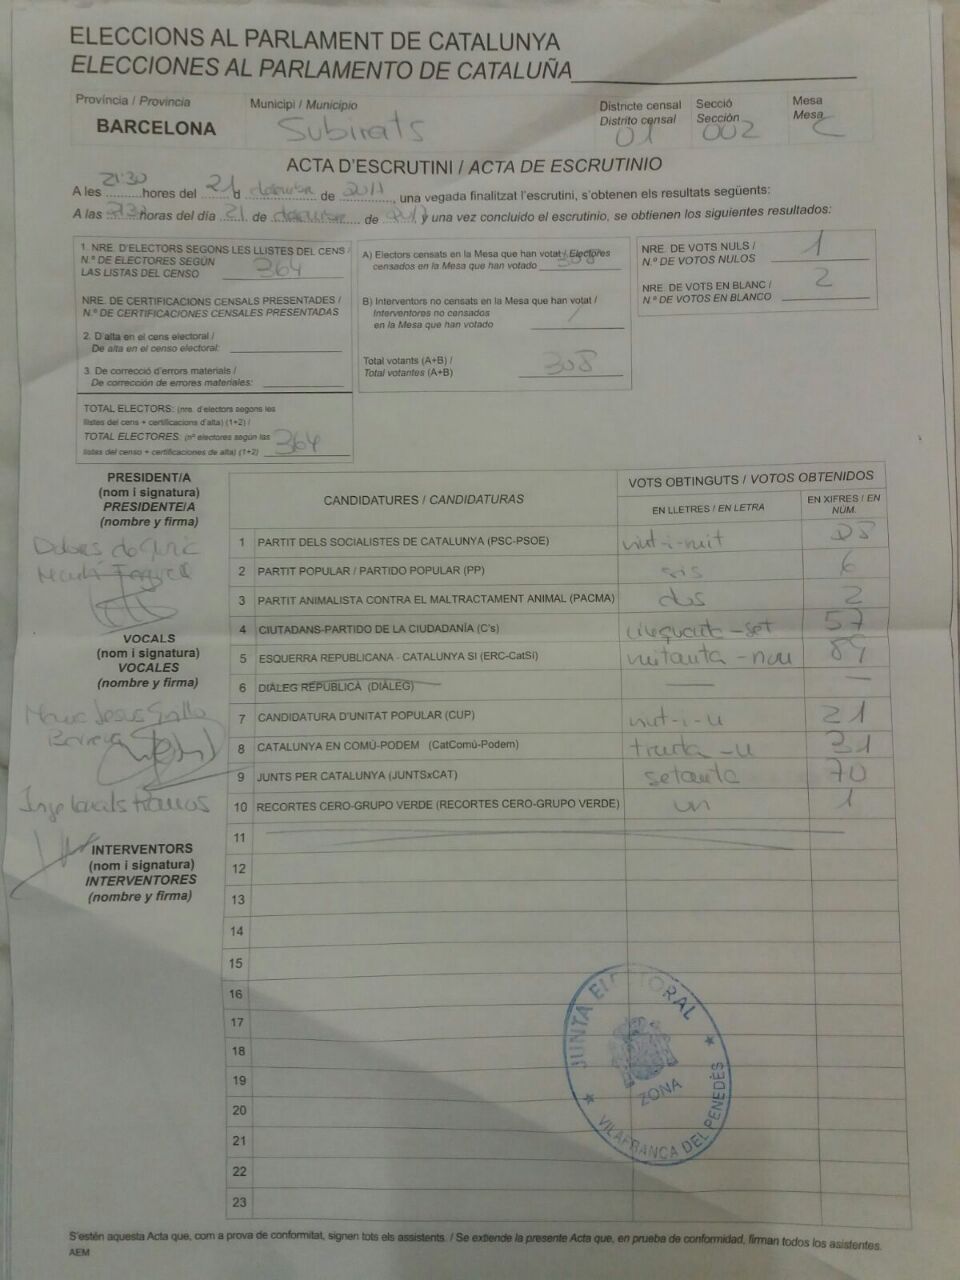 ELECCIONS AL PARLAMENT DE CATALUNYA
ELECCIONES AL PARLAMENTO DE CATALUÑA
Província / Provincia
BARCELONA
Municipi / Municipio
Subirats
Districte censal
Distrito censal
01
Secció
Sección
002
Mesa
Mesa
C
ACTA D'ESCRUTINI / ACTA DE ESCRUTINIO
A les 21:30 hores del 21 d desembre de 2017, una vegada finalitzat l'escrutini, s'obtenen els resultats següents:
A las horas del día 21 de de y una vez concluido el escrutinio, se obtienen los siguientes resultados:
1. NRE. D'ELECTORS SEGONS LES LLISTES DEL CENS /
N.º DE ELECTORES SEGÚN
LAS LISTAS DEL CENSO 364
NRE. DE CERTIFICACIONS CENSALS PRESENTADES /
N.º DE CERTIFICACIONES CENSALES PRESENTADAS
2. D'alta en el cens electoral /
De alta en el censo electoral:
3. De correcció d'errors materials /
De corrección de errores materiales:
TOTAL ELECTORS: (nre. d'electors segons les
llistes del cens + certificacions d'alta) (1+2) /
TOTAL ELECTORES: (nº electores según las
listas del censo + certificaciones de alta) (1+2) 364
A) Electors censats en la Mesa que han votat / Electores
censados en la Mesa que han votado 308
B) Interventors no censats en la Mesa que han votat /
Interventores no censados
en la Mesa que han votado
Total votants (A+B) /
Total votantes (A+B) 308
NRE. DE VOTS NULS /
N.º DE VOTOS NULOS 1
NRE. DE VOTS EN BLANC /
N.º DE VOTOS EN BLANCO 2
PRESIDENT/A
(nom i signatura)
PRESIDENTE/A
(nombre y firma)
VOCALS
(nom i signatura)
VOCALES
(nombre y firma)
INTERVENTORS
(nom i signatura)
INTERVENTORES
(nombre y firma)
CANDIDATURES / CANDIDATURAS
VOTS OBTINGUTS / VOTOS OBTENIDOS
EN LLETRES / EN LETRA
EN XIFRES / EN NÚM.
1 PARTIT DELS SOCIALISTES DE CATALUNYA (PSC-PSOE) vint-i-vuit 28
2 PARTIT POPULAR / PARTIDO POPULAR (PP) sis 6
3 PARTIT ANIMALISTA CONTRA EL MALTRACTAMENT ANIMAL (PACMA) dos 2
4 CIUTADANS-PARTIDO DE LA CIUDADANÍA (C's) cinquanta-set 57
5 ESQUERRA REPUBLICANA - CATALUNYA SÍ (ERC-CatSí) vuitanta-nou 89
6 DIÀLEG REPUBLICÀ (DIÀLEG) — —
7 CANDIDATURA D'UNITAT POPULAR (CUP) vint-i-u 21
8 CATALUNYA EN COMÚ-PODEM (CatComú-Podem) trenta-u 31
9 JUNTS PER CATALUNYA (JUNTSxCAT) setanta 70
10 RECORTES CERO-GRUPO VERDE (RECORTES CERO-GRUPO VERDE) un 1
11
12
13
14
15
16
17
18
19
20
21
22
23
JUNTA ELECTORAL
ZONA
VILAFRANCA DEL PENEDÈS
S'estén aquesta Acta que, com a prova de conformitat, signen tots els assistents. / Se extiende la presente Acta que, en prueba de conformidad, firman todos los asistentes.
AEM